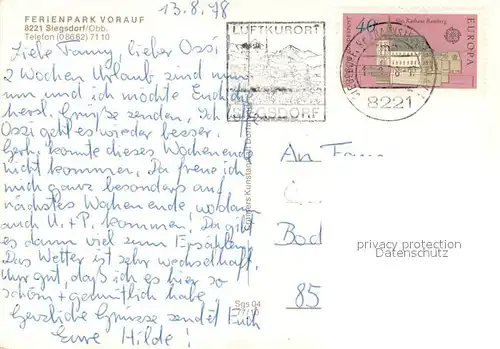 13.8.78
FERIENPARK VORAUF
8221 Siegsdorf/Obb.
Telefon (08662) 7110
LUFTKURORT
SIEGSDORF
40
Altes Rathaus Bamberg
EUROPA
8221
Liebe Fanny lieber Ossi
2 Wochen Urlaub sind nun
um und ich möchte Euch die
herzl. Grüße senden, Ich
Ossi geht es wieder besser.
Gerh. konnte dieses Wochenende
nicht kommen. Da freue ich
mich ganz besonders auf
nächstes Wochenende, wo dann
auch U. + P. kommen. Da gibt
es dann viel zum Erzählen.
Das Wetter ist sehr wechselhaft.
Nur gut, daß ich es hier so
schön + gemütlich habe.
Herzliche Grüsse sendet Euch
Eure Hilde!
An
Bad
85
privacy protection
Datenschutz
Sgs 04